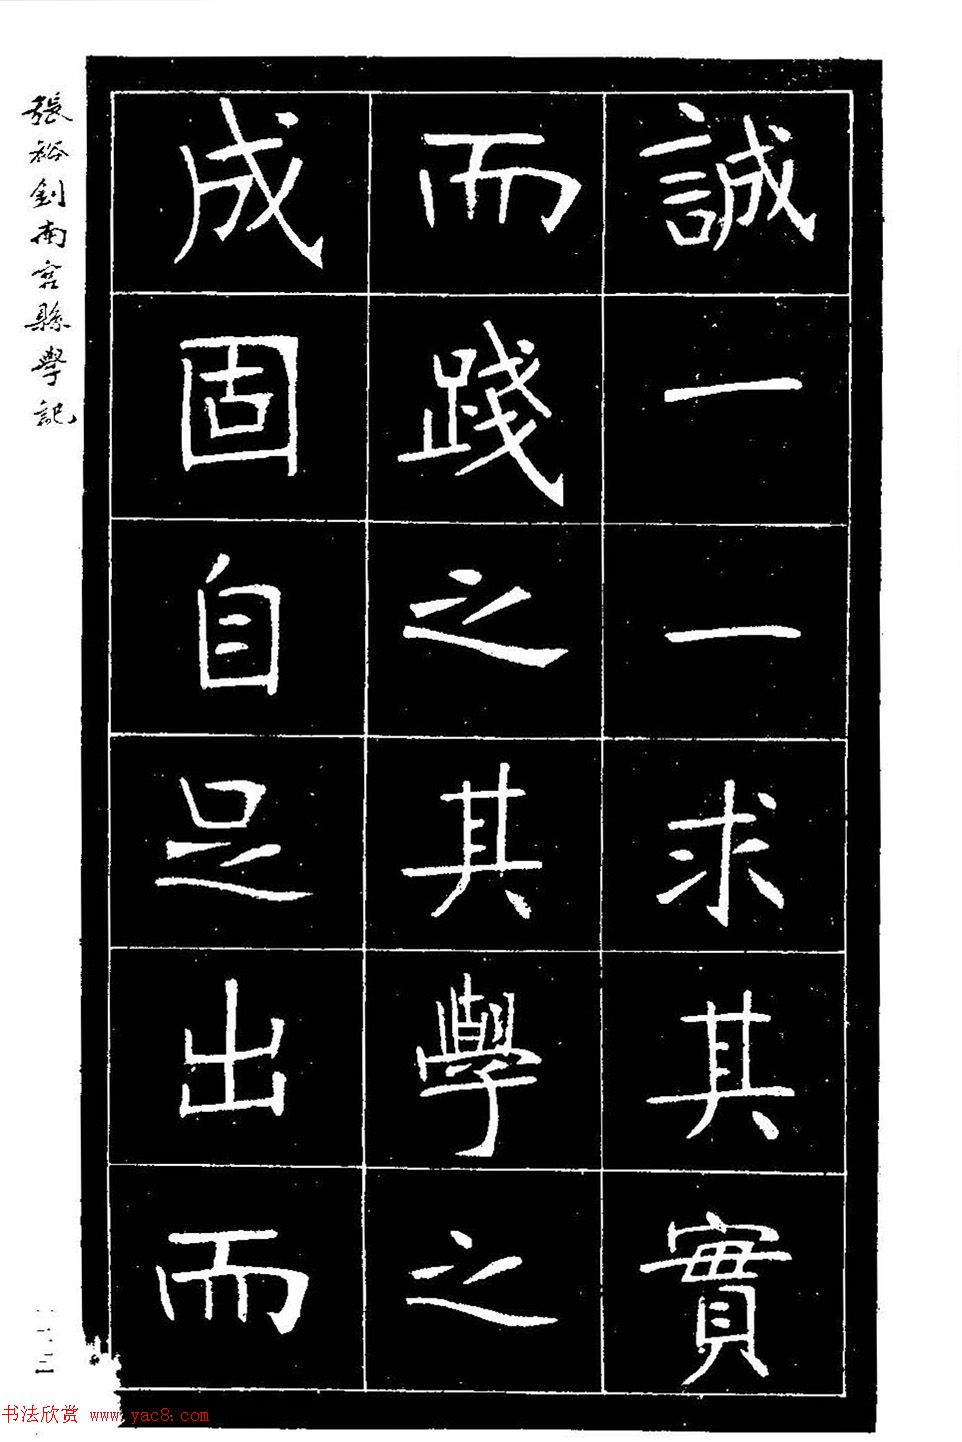 誠一一求其實
而踐之其學之
成固自足出而
張裕釗南宮縣學記
一三
书法欣赏 www.yac8.com